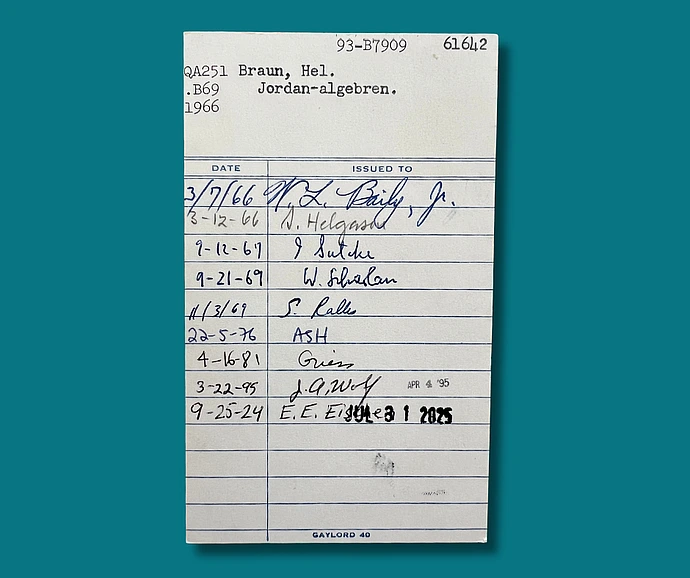 93-B7909 61642
QA251 Braun, Hel.
.B69 Jordan-algebren.
1966
DATE ISSUED TO
3/7/66 W. L. Baily, Jr.
3-12-66 S. Helgason
9-12-67
9-21-69 W.
11/3/69 S. Rallis
22-5-76 ASH
4-16-81 Griess
3-22-95 J. A. Wolf APR 4 '95
9-25-24 E. E. JUL 31 2025
GAYLORD 40